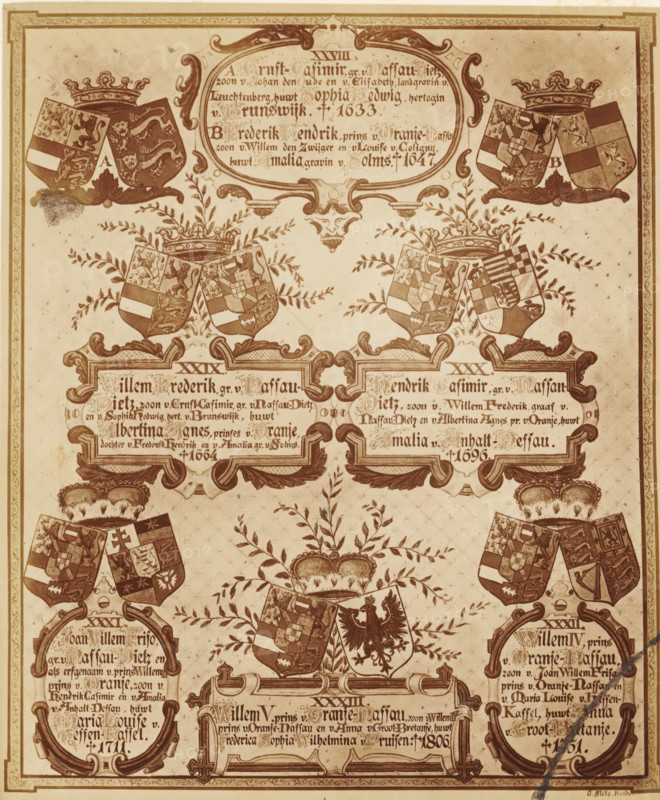 XXVIII.
A Ernst-Casimir, gr. v. Nassau-Dietz,
zoon v. Johan den oude en v. Elisabeth, landgravin v.
Leuchtenberg, huwt Sophia Hedwig, hertogin
v. Brunswijk. † 1633.
B Frederik Hendrik, prins v. Oranje-Nassau
zoon v. Willem den Zwijger en v. Louise v. Coligny,
huwt Amalia gravin v. Solms. † 1647.
A
B
XXIX
Willem Frederik, gr. v. Nassau-
Dietz, zoon v. Ernst-Casimir, gr. v. Nassau-Dietz
en v. Sophia Hedwig, hert. v. Brunswijk, huwt
Albertina Agnes, prinses v. Oranje,
dochter v. Frederik Hendrik en v. Amalia gr. v. Solms.
† 1664
XXX.
Hendrik Casimir, gr. v. Nassau-
Dietz, zoon v. Willem Frederik, graaf v.
Nassau Dietz en v. Albertina Agnes pr. v. Oranje, huwt
Amalia v. Anhalt-Dessau.
† 1696.
XXXI.
Joan Willem Friso,
gr. v. Nassau-Dietz en
als erfgenaam v. prins Willem
prins v. Oranje, zoon v.
Hendrik Casimir en v. Amalia
v. Anhalt-Dessau, huwt
Maria Louise v.
Hessen-Kassel.
† 1711.
XXXII.
Willem IV, prins
v. Oranje-Nassau,
zoon v. Joan Willem Friso,
prins v. Oranje-Nassau en
v. Maria Louise v. Hessen-
Kassel, huwt Anna
v. Groot-Bretanje.
† 1751.
XXXIII
Willem V, prins v. Oranje-Nassau, zoon v. Willem IV
prins v. Oranje-Nassau en v. Anna v. Groot-Bretanje, huwt
Frederica Sophia Wilhelmina v. Pruisen. † 1806